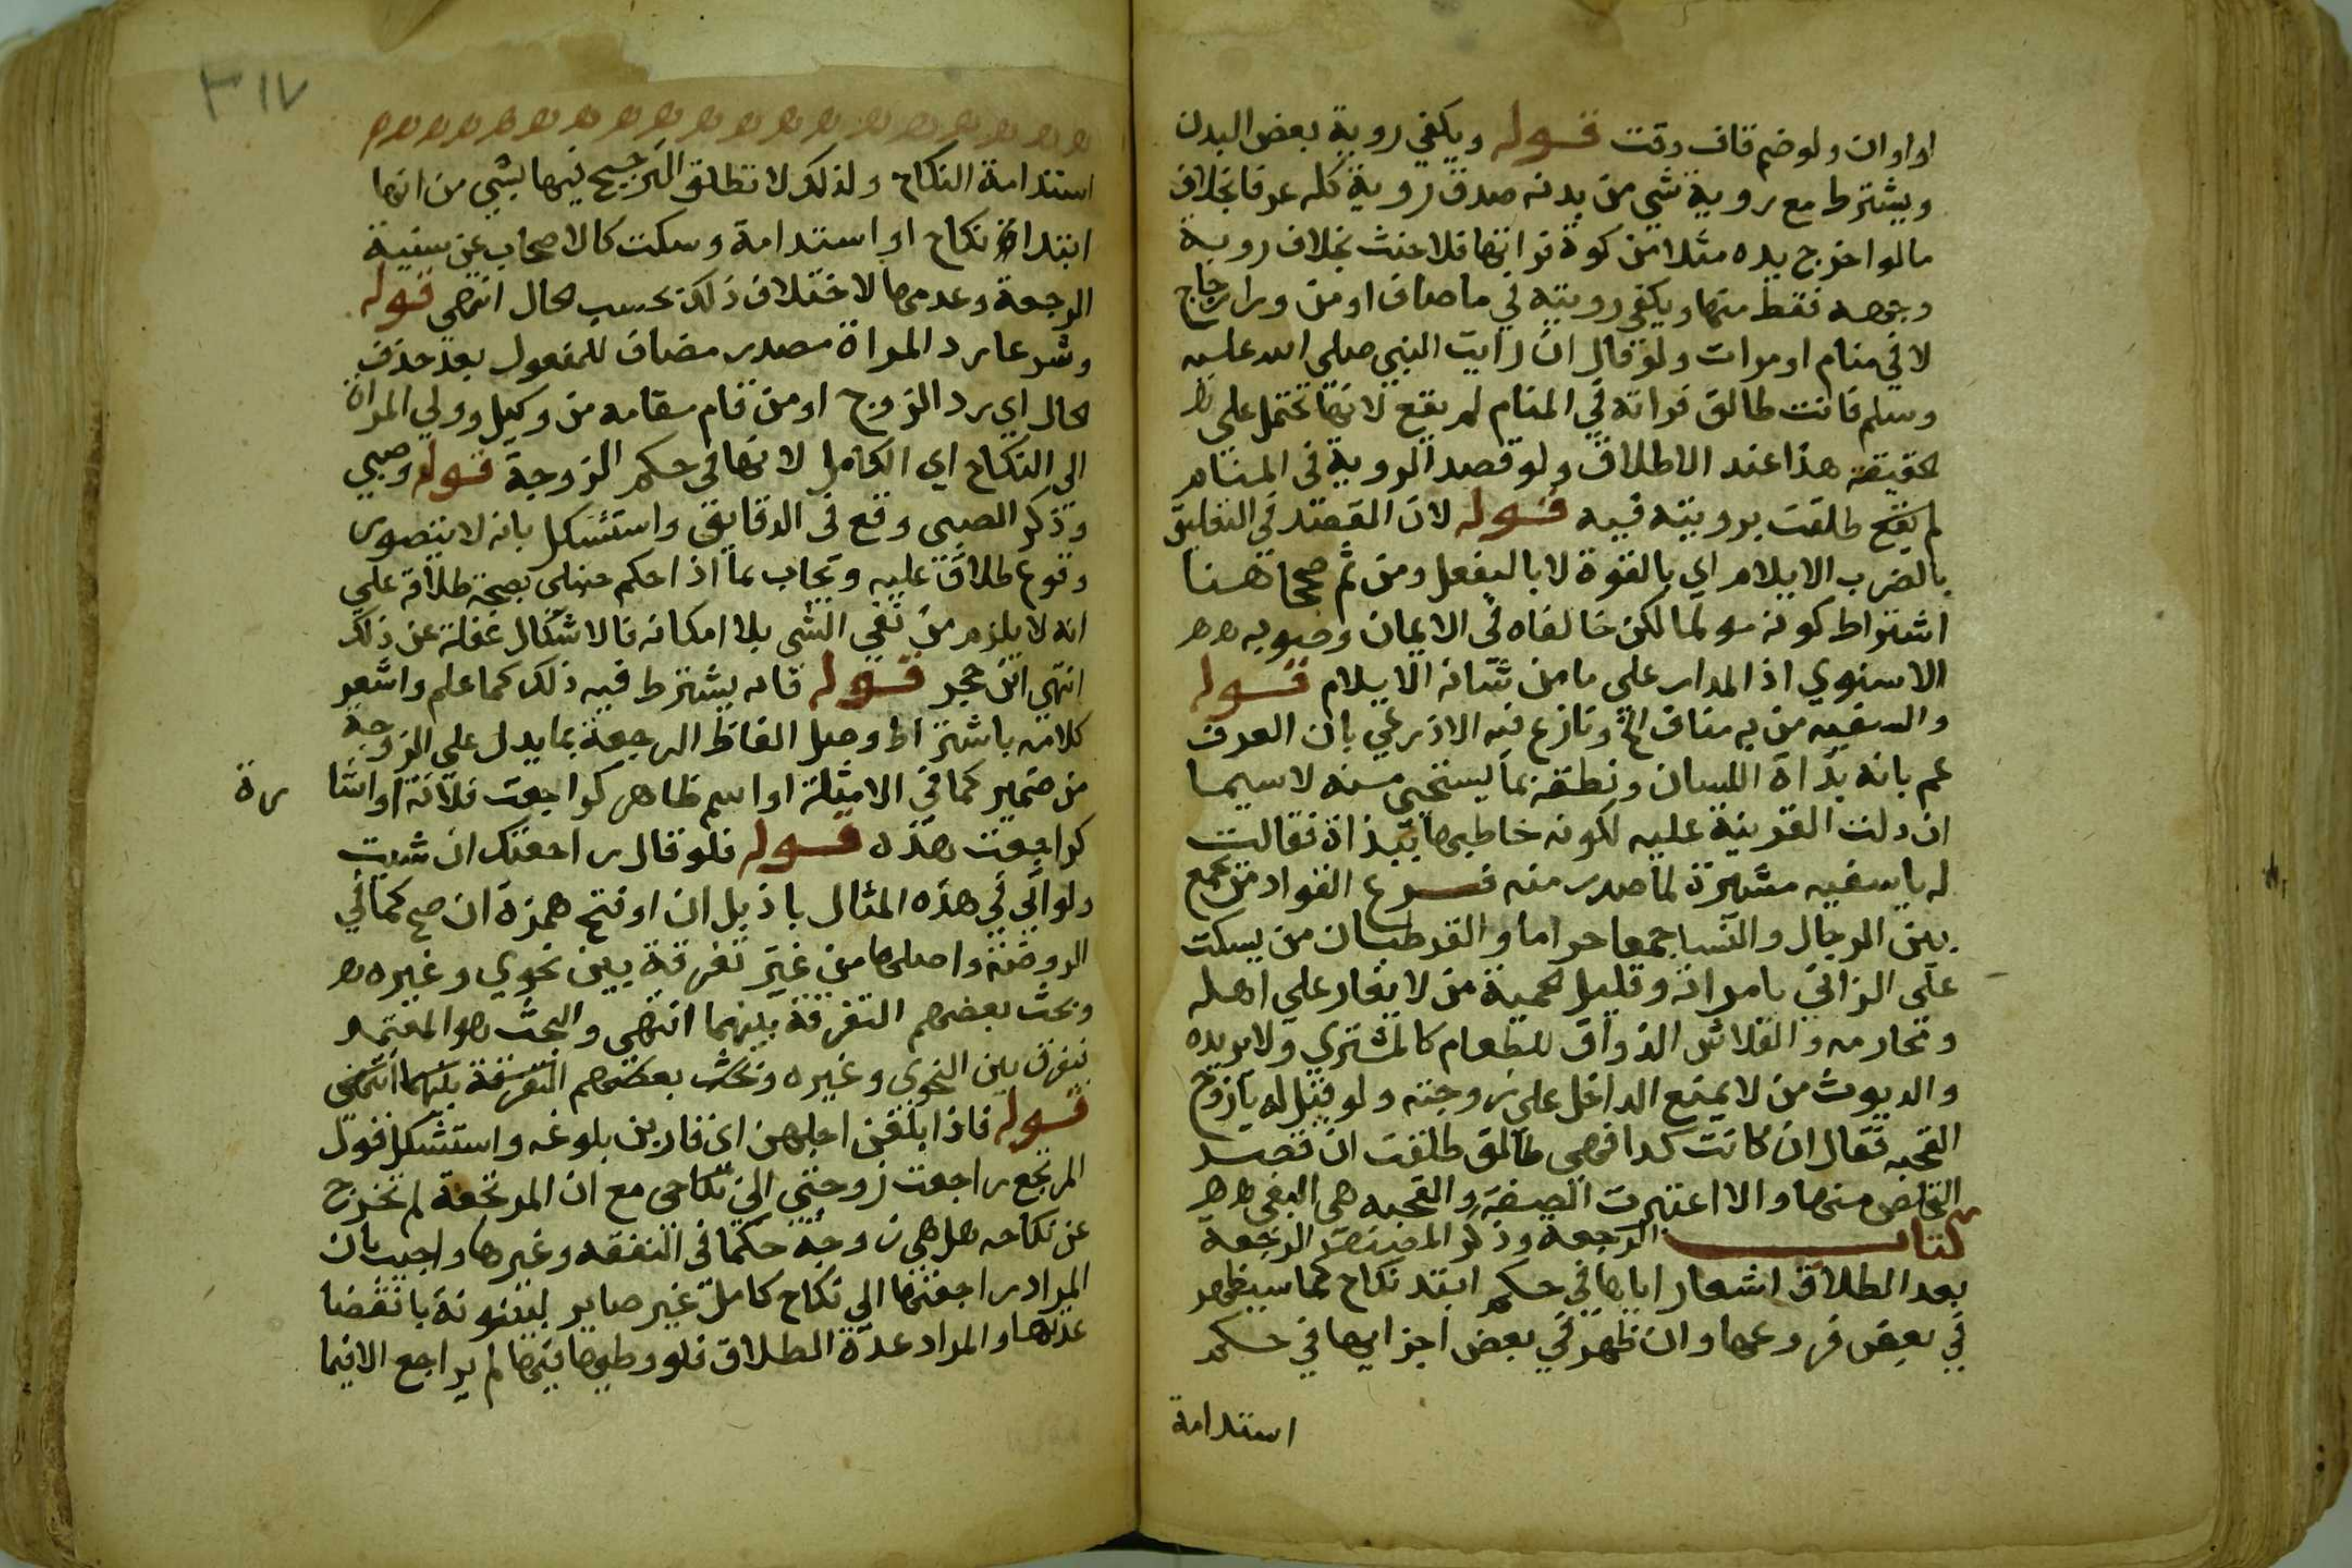 او اوان ولو ضم قاف وقت قوله ويكفي روية بعض البدن
ويشترط مع روية شي من بدنه صدق روية كله عرفا بخلاف
مالو اخرج يده مثلا من كوة فراتها فلا حنث بخلاف روية
وجهه فقط منها ويكفي رويته في ماصاف او من ورا زجاج
لا في منام او مرات ولو قال ان رايت النبي صلى الله عليه
وسلم فانت طالق فراته في المنام لم يقع لانها تحتمل على
الحقيقة هذا عند الاطلاق ولو قصد الروية في المنام
لم يقع طلقت برويته فيه قوله لان القصد في التعليق
بالضرب الايلام اي بالقوة لا بالفعل ومن ثم صححا هنا
اشتراط كونه مولما لكن خالفاه في الايمان وصوبه
الاسنوي اذ المدار على ما من شانه الايلام قوله
والسفيه من به مناف الخ ونازع فيه الاذرعي بان العرف
عم بانه بذاة اللسان ونطقه بما يستحيى منه لاسيما
ان دلت القرينة عليه لكونه خاطبها ببذاة فقالت
له ياسفيه مشيرة لما صدر منه فرع القواد من يجمع
بين الرجال والنسا جمعا حراما والقرطبان من يسكت
على الزاني بامراته وقليل الحمية من لا يغار على اهله
ومحارمه والقلاش الذواق للطعام كالمشتري ولا يريده
والديوث من لا يمنع الداخل على زوجته ولو قيل له يا زوج
القحبه فقال ان كانت كدا فهي طالق طلقت ان قصد
التخلص منها والا اعتبرت الصفة والقحبه هي البغي
كتاب الرجعة وذكر المصنف الرجعة
بعد الطلاق اشعار ابابها في حكم ابتد نكاح كما سيظهر
في بعض فروعها وان ظهر في بعض اجزايها في حكم
استدامة
٣١٧
استدامة النكاح ولذلك لا نطلق الترجيح فيها بشي من انها
ابتداة نكاح او استدامة وسكت كالاصحاب عن سنية
الرجعة وعدمها لاختلاف ذلك بحسب الحال انتهى قوله
وشرعا رد المراة مصدر مضاف للمفعول بعد حذف
الحال اي رد الزوج او من قام مقامه من وكيل وولي المراة
الى النكاح اي الكامل لانها في حكم الزوجة قوله وصبي
وذكر الصبي وقع في الدقايق واستشكل بانه لا يتصور
وقوع طلاق عليه ويجاب بما اذا حكم حنبلي بصحة طلاقه على
انه لا يلزم من نفي الشي بلا امكانه فالاشكال غفلة عن ذلك
انتهى ابن حجر قوله فانه يشترط فيه ذلك كما علم واشعر
كلامه باشتراط وصل الفاظ الرجعة بما يدل على الزوجة
من ضمير كما في الامثلة او اسم ظاهر كراجعت فلانة او اشا
رة
كراجعت هذه قوله فلو قال راجعتك ان شيت
ولو اتي في هذه المثال باذ بدل ان او فتح همزة ان صح كما في
الروضة واصلها من غير تفرقة بين نحوي وغيره
وبحث بعضهم التفرقة بينهما انتهى والبحث هو المعتمد
نيفرق بين النحوي وغيره وبحث بعضهم التفرقة بينهما انتهى
قوله فاذا بلغن اجلهن اي قاربن بلوغه واستشكل قول
المرتجع راجعت زوجتي الى نكاحي مع ان المرتجعة لم تخرج
عن نكاحه هل هي زوجة حكما في النفقه وغيرها واجيب بان
المراد راجعتها الى نكاح كامل غير صاير لبينونة بانقضا
عدتها والمراد عدة الطلاق فلو وطيها فيها لم يراجع الا فيما